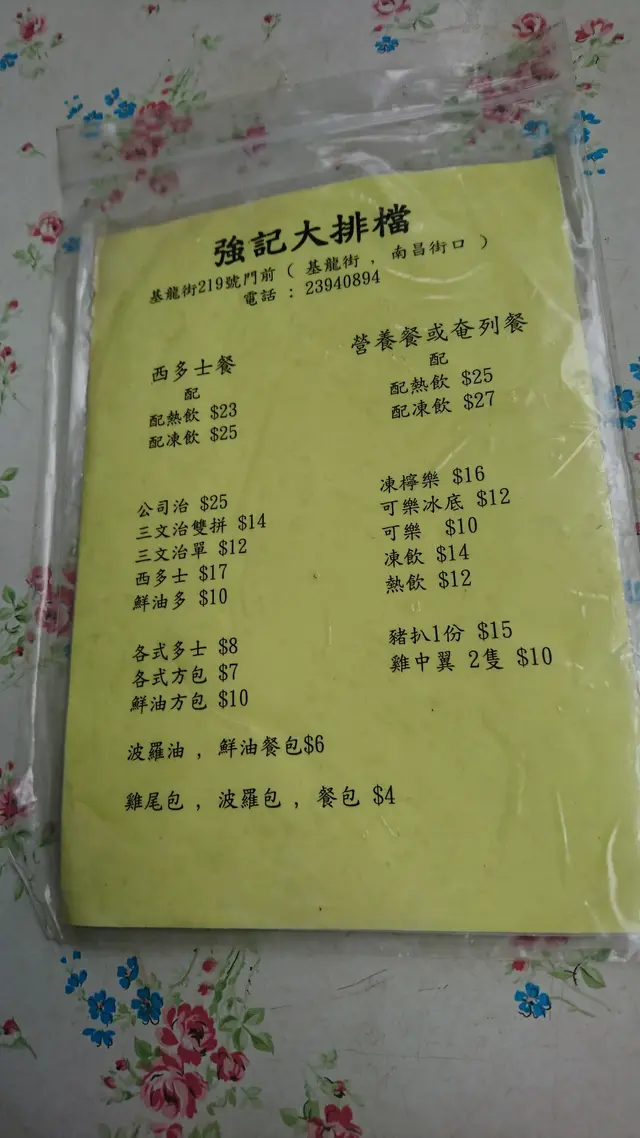 強記大排檔
基龍街219號門前 ( 基龍街 , 南昌街口 )
電話 : 23940894
西多士餐
配
配熱飲 $23
配凍飲 $25
營養餐或奄列餐
配
配熱飲 $25
配凍飲 $27
公司治 $25
三文治雙拼 $14
三文治單 $12
西多士 $17
鮮油多 $10
各式多士 $8
各式方包 $7
鮮油方包 $10
波羅油 , 鮮油餐包$6
雞尾包 , 波羅包 , 餐包 $4
凍檸樂 $16
可樂冰底 $12
可樂 $10
凍飲 $14
熱飲 $12
豬扒1份 $15
雞中翼 2隻 $10